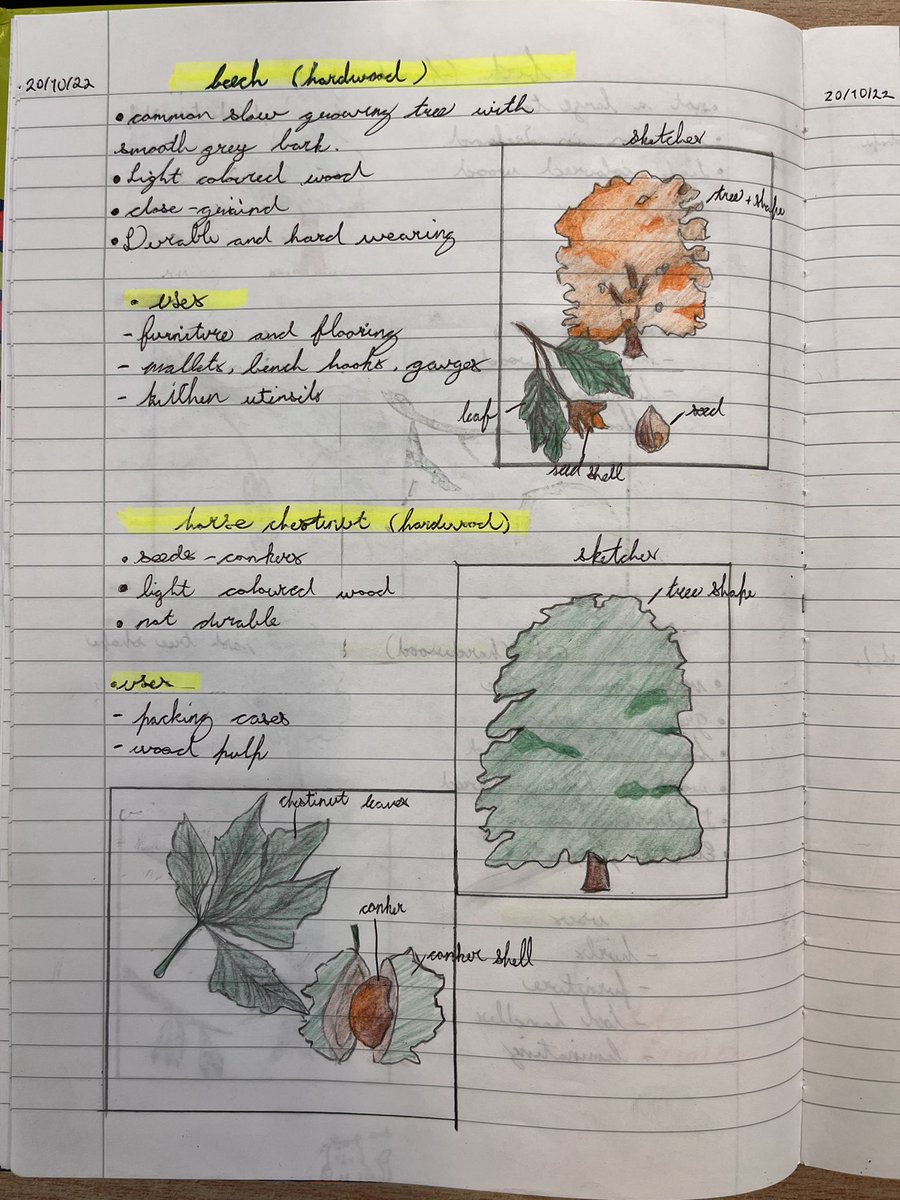 20/10/22
beech (hardwood)
• common slow growing tree with
smooth grey bark.
• Light coloured wood
• close-greiind
• Durable and hard wearing
• uses
- furniture and flooring
- mallets, bench hooks, gauges
- kitchen utinsils
sketches
tree + shape
leaf
seed
seed shell
horse chestnut (hardwood)
• seeds - conkers
• light coloured wood
• not durable
• uses
- packing cases
- wood pulp
sketches
tree shape
chestinut leaves
conker
conker shell
20/10/22